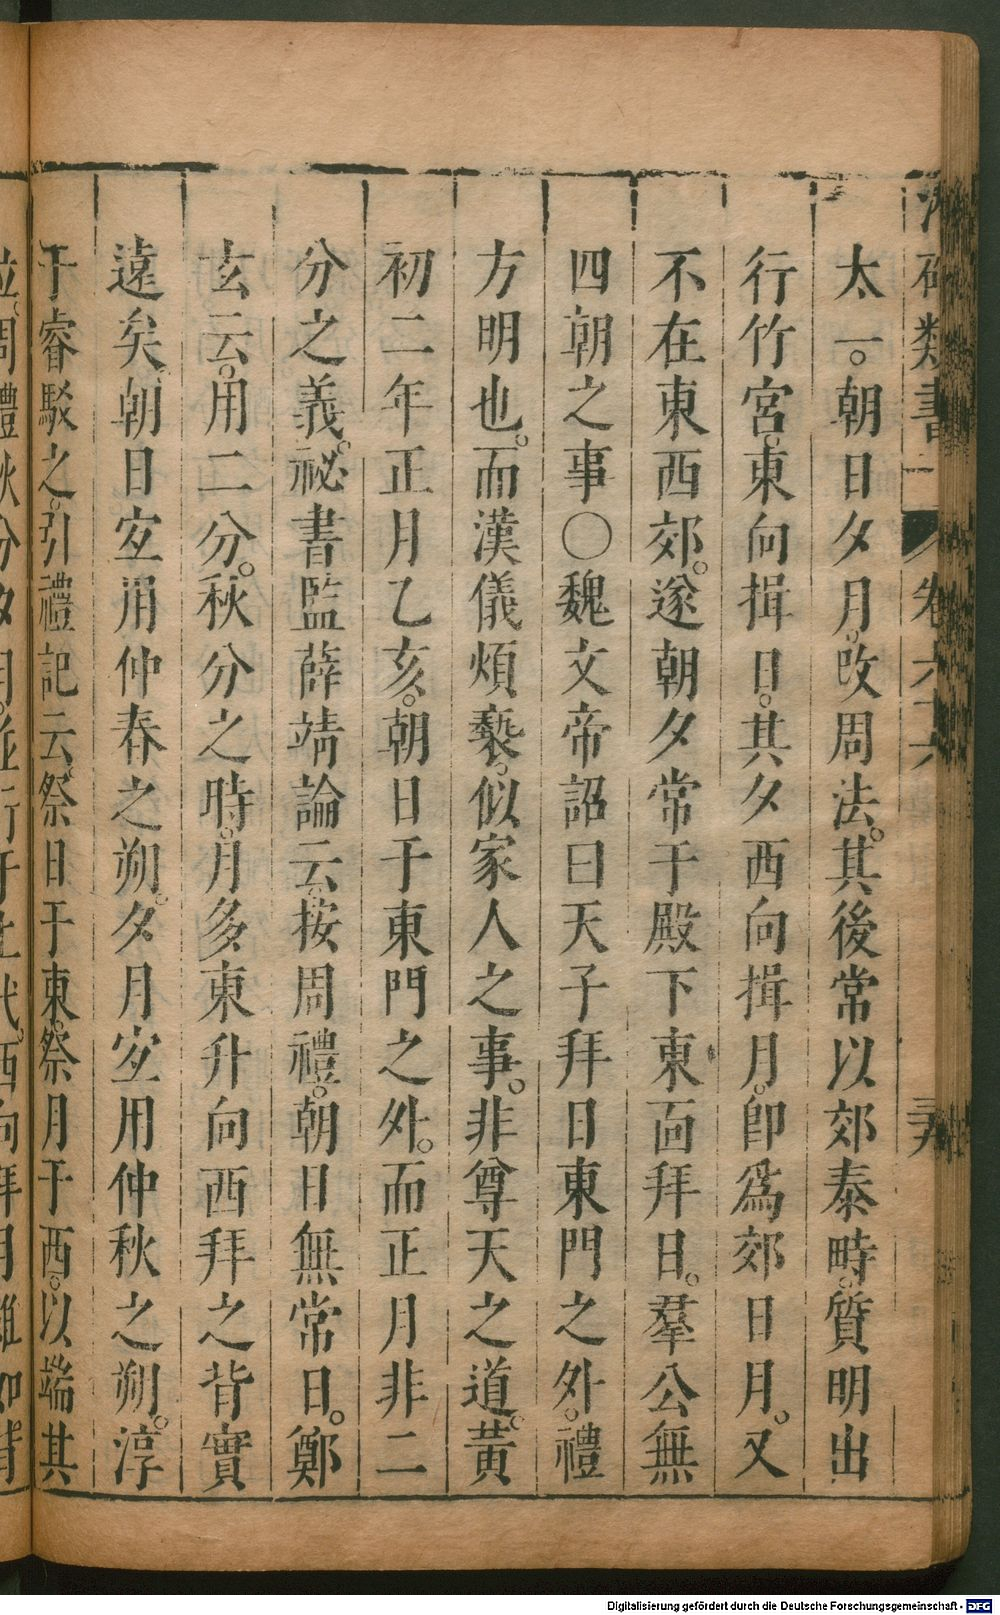 類書
卷六
太一。朝日夕月。改周法。其後常以郊泰畤。質明出
行竹宮。東向揖日。其夕西向揖月。卽爲郊日月。又
不在東西郊。遂朝夕常于殿下東面拜日。羣公無
四朝之事〇魏文帝詔曰天子拜日東門之外。禮
方明也。而漢儀煩褻。似家人之事。非尊天之道。黃
初二年正月乙亥。朝日于東門之外。而正月非二
分之義。祕書監薛靖論云。按周禮。朝日無常日。鄭
玄云。用二分。秋分之時。月多東升向西拜之背實
遠矣。朝日宐用仲春之朔。夕月宐用仲秋之朔。淳
于睿駁之。引禮記云。祭日于東。祭月于西。以端其
位。周禮秋分夕月。並行于上代。西向拜月雖如背
Digitalisierung gefördert durch die Deutsche Forschungsgemeinschaft - DFG